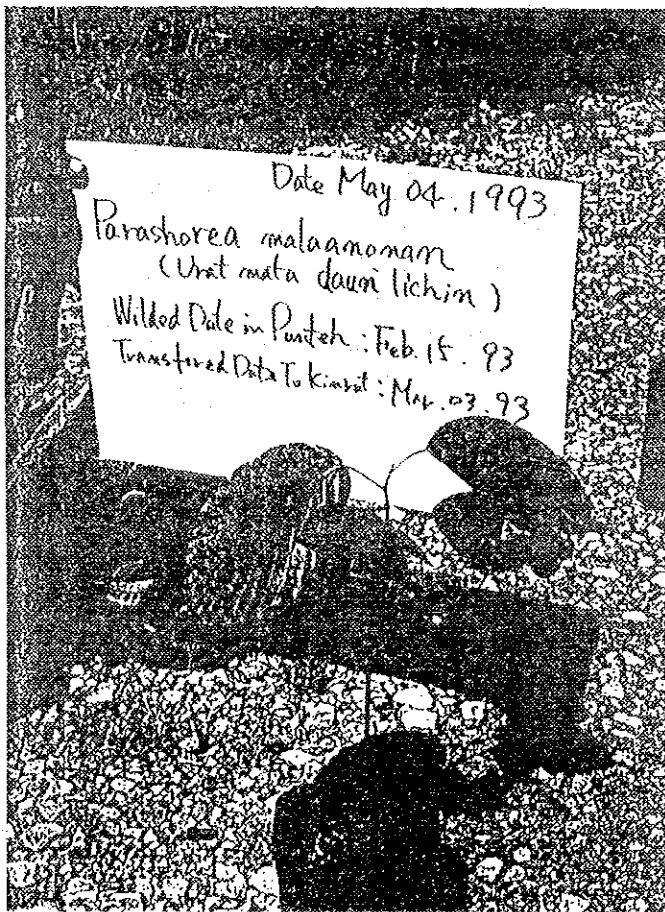 Date May 04. 1993
Parashorea malaanonan
(Urat mata daun lichin)
Wilded Date in Puniteh : Feb. 15. 93
Transfered Data To Kimrat : Mar. 03. 93